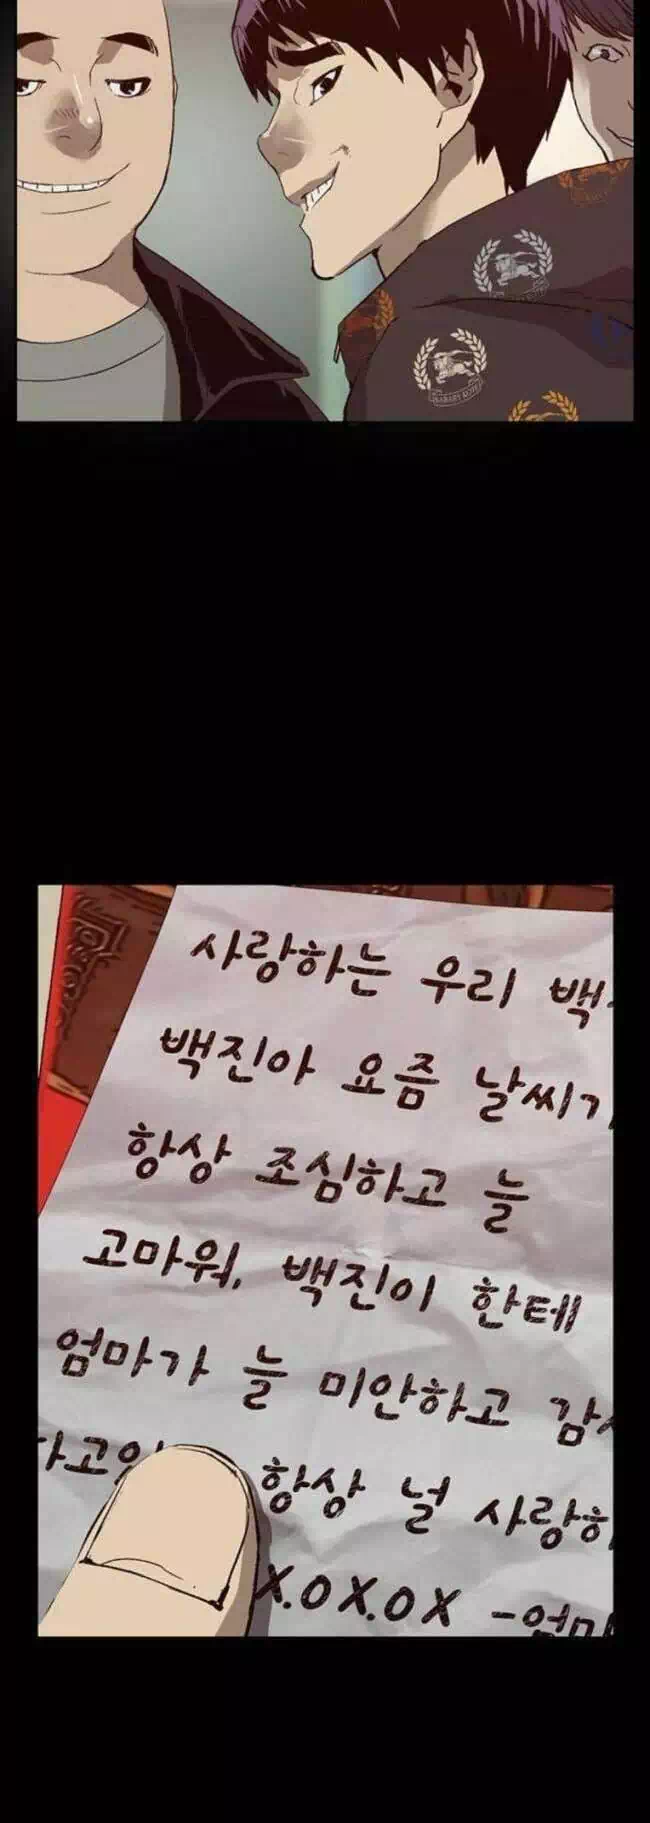 사랑하는 우리 백
백진아 요즘 날씨가
항상 조심하고 늘
고마워, 백진이 한테
엄마가 늘 미안하고 감사
하고있 항상 널 사랑하
X.OX.OX -엄마